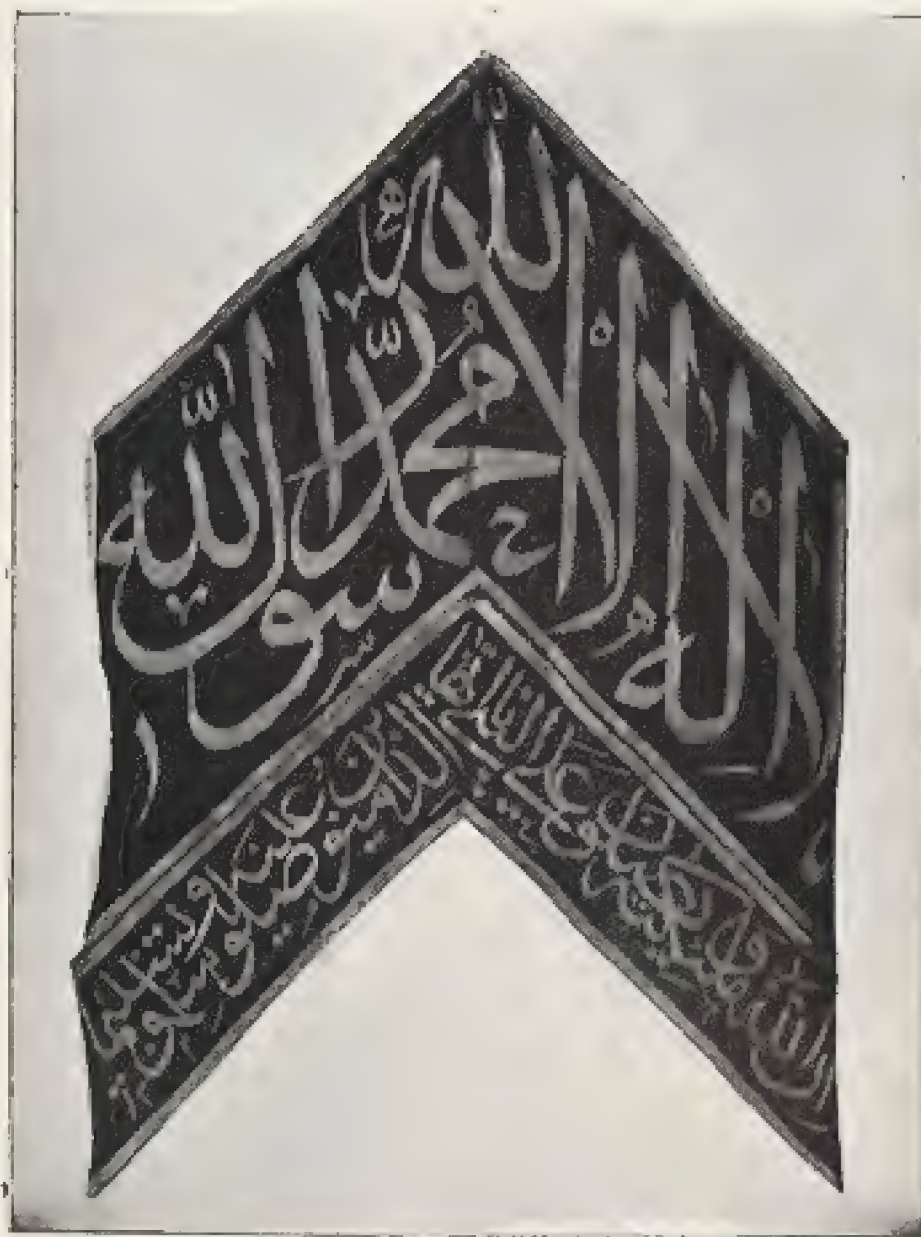 لا اله الا الله محمد رسول الله
ان الله وملئكته يصلون على النبي يا ايها الذين امنوا صلوا عليه وسلموا تسليما